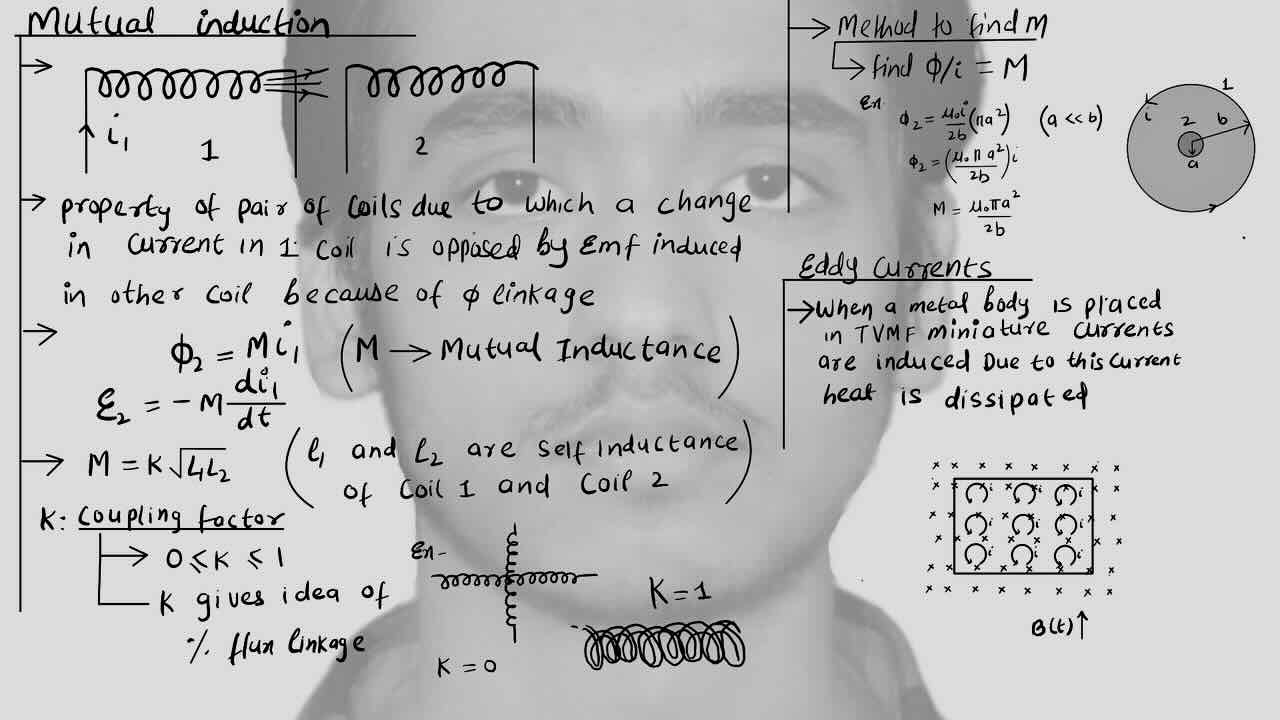 Mutual induction
i₁
1
2
property of pair of coils due to which a change
in current in 1 coil is opposed by Emf induced
in other coil because of φ linkage
φ₂ = Mi₁ (M → Mutual Inductance)
ε₂ = -M di₁/dt
M = K√L₁L₂ (l₁ and L₂ are self inductance
of coil 1 and coil 2)
K: coupling factor
0 ≤ K ≤ 1
K gives idea of
% flux linkage
Ex-
K = 0
K = 1
Method to find M
find φ/i = M
Ex.
φ₂ = μ₀i/2b (πa²) (a << b)
φ₂ = (μ₀πa²/2b)i
M = μ₀πa²/2b
1
i
2
b
a
Eddy Currents
When a metal body is placed
in TVMF miniature currents
are induced Due to this current
heat is dissipated
x x x x x x x x
i i i
i i i
i i i
x x x x x x x x
B(t)↑